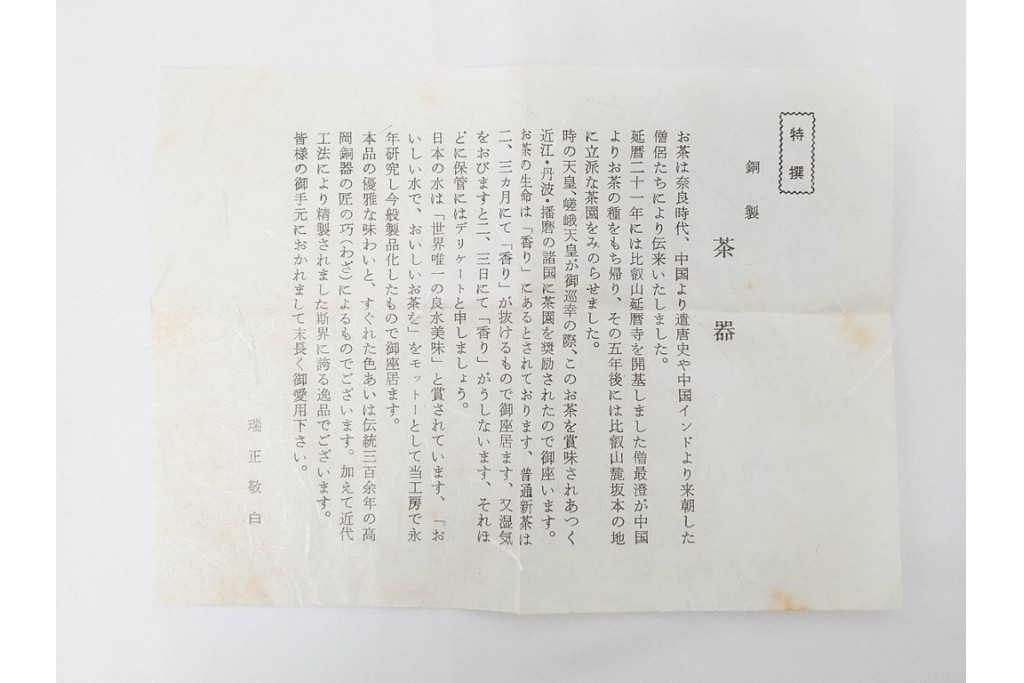 特撰
銅製
茶器
お茶は奈良時代、中国より遣唐史や中国インドより来朝した
僧侶たちにより伝来いたしました。
延暦二十一年には比叡山延暦寺を開基しました僧最澄が中国
よりお茶の種をもち帰り、その五年後には比叡山麓坂本の地
に立派な茶園をみのらせました。
時の天皇、嵯峨天皇が御巡幸の際、このお茶を賞味されあつく
近江・丹波・播磨の諸国に茶園を奨励されたので御座います。
お茶の生命は「香り」にあるとされております、普通新茶は
二、三ヵ月にて「香り」が抜けるもので御座居ます、又湿気
をおびますと二、三日にて「香り」がうしないます、それほ
どに保管にはデリケートと申しましょう。
日本の水は「世界唯一の良水美味」と賞されています、「お
いしい水で、おいしいお茶を」をモットーとして当工房で永
年研究し今般製品化したもので御座居ます。
本品の優雅な味わいと、すぐれた色あいは伝統三百余年の高
岡銅器の匠の巧(わざ)によるものでございます。加えて近代
工法により精製されました斯界に誇る逸品でございます。
皆様の御手元におかれまして末長く御愛用下さい。
瑞正敬白